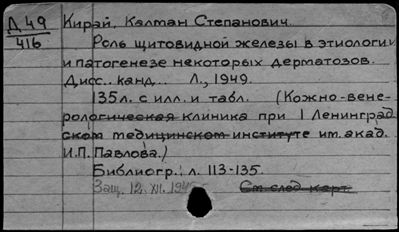 Д 49
416
Кирай, Калман Степанович.
Роль щитовидной железы в этиологии
и патогенезе некоторых дерматозов.
Дисс.. канд... Л., 1949.
135 л. с илл. и табл. (Кожно-вене-
рологическая клиника при I Ленинград
ском медицинском институте им. акад.
И.П. Павлова.)
Библиогр.: л. 113-135.
Защ. 12. XII. 194
См след карт.